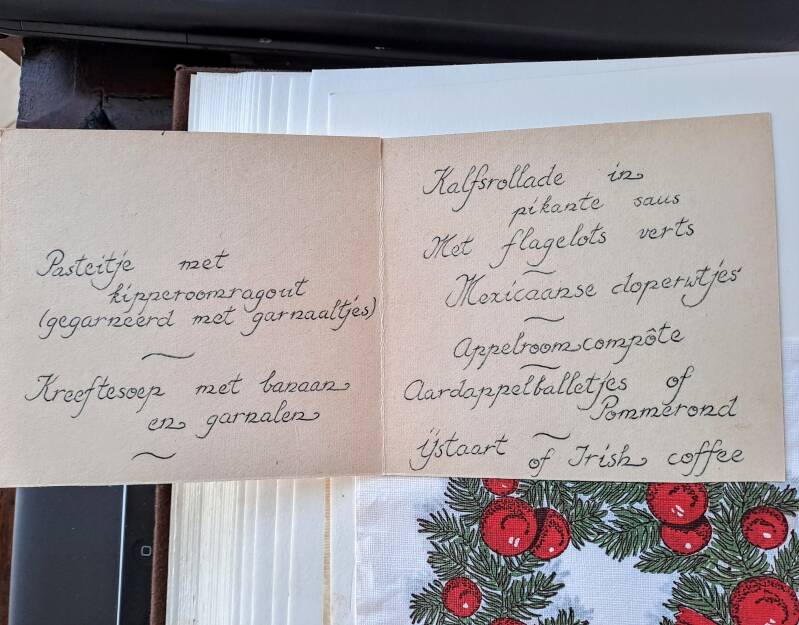 Pasteitje met
kipperoomragout
(gegarneerd met garnaaltjes)
Kreeftesoep met banaan
en garnalen
Kalfsrollade in
pikante saus
Met flagelots verts
Mexicaanse doperwtjes
Appelroomcompôte
Aardappelballetjes of
Pommerond
ijstaart of Irish coffee